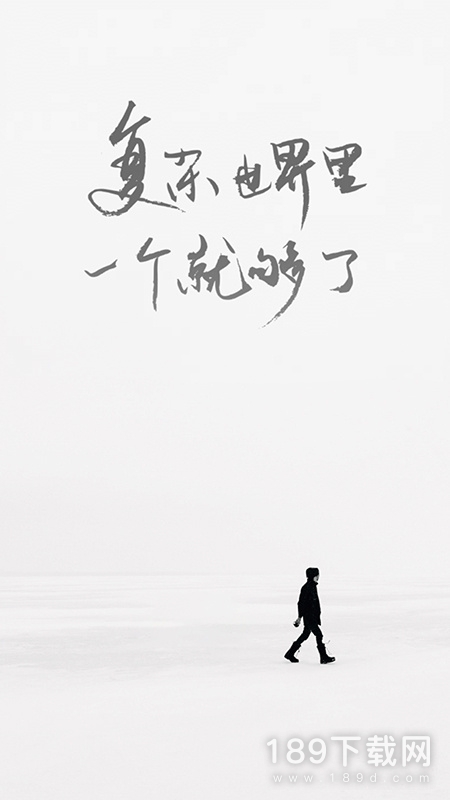 复杂世界里
一个就够了
189下载网
www.189d.com